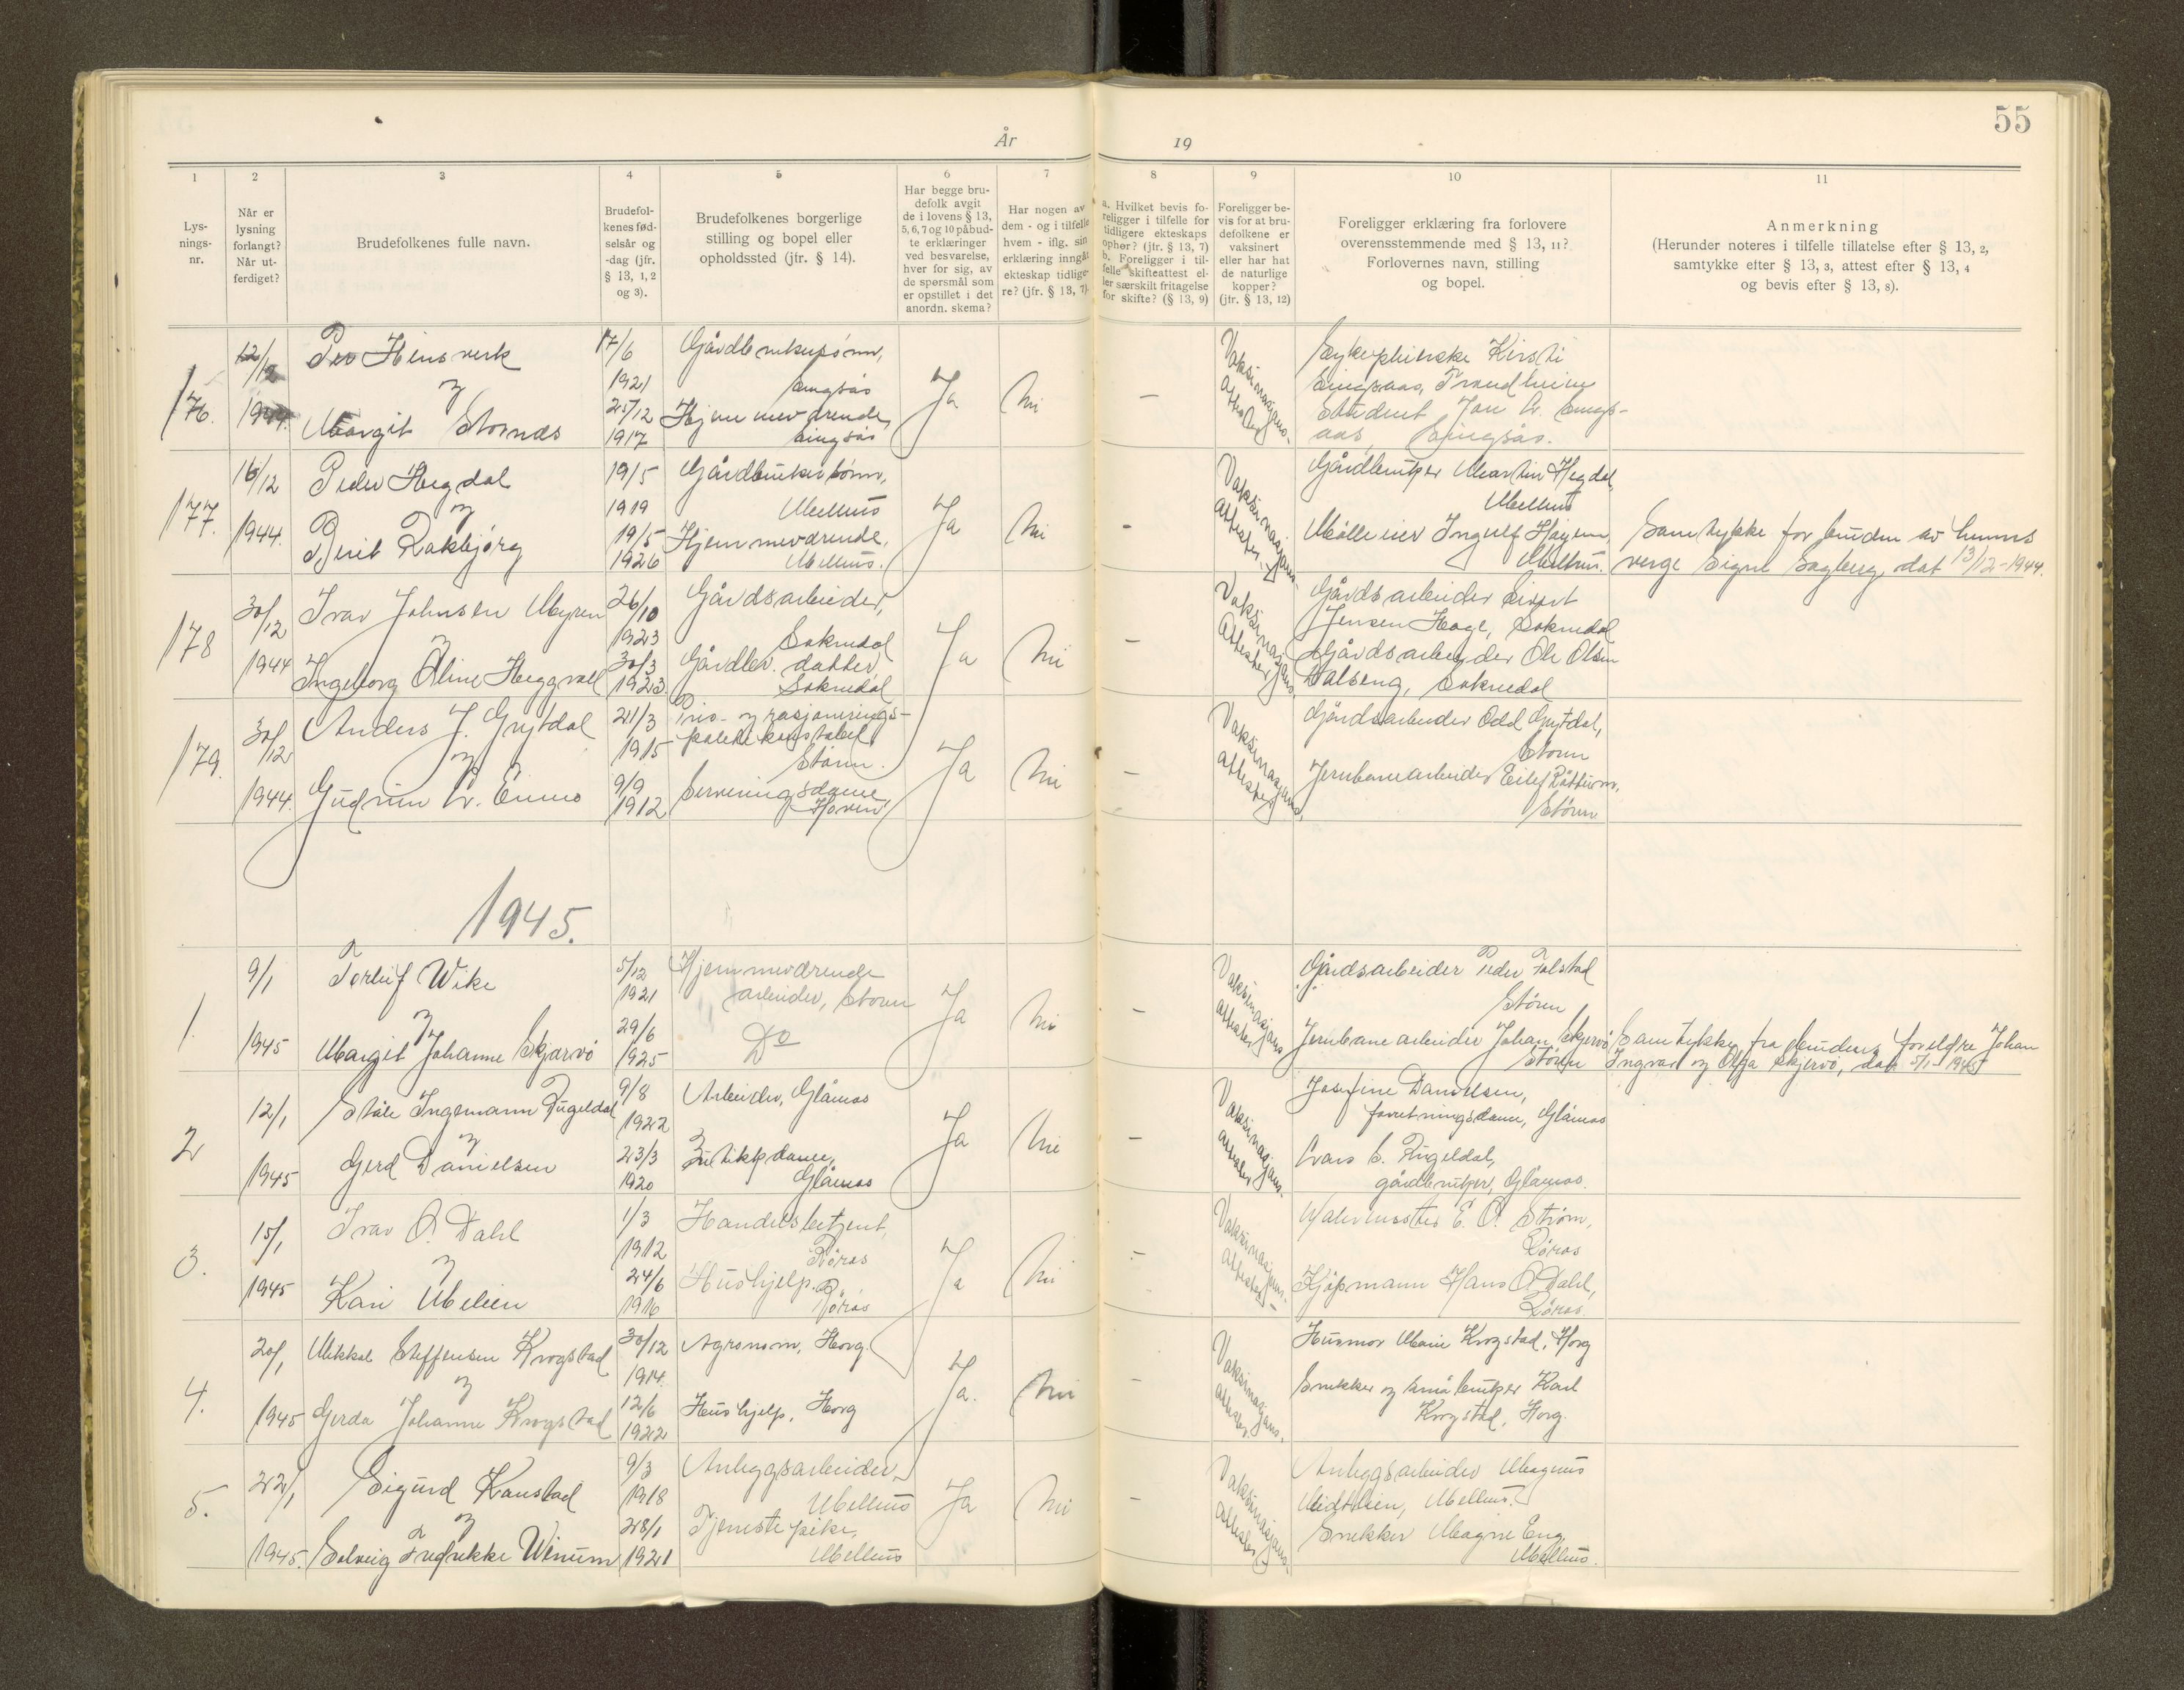 55
År 19
1 2 3 4 5 6 7 8 9 10 11
Lys-
nings-
nr.
Når er
lysning
forlangt?
Når ut-
ferdiget?
Brudefolkenes fulle navn.
Brudefol-
kenes fød-
selsår og
-dag (jfr.
§ 13, 1, 2
og 3).
Brudefolkenes borgerlige
stilling og bopel eller
opholdssted (jfr. § 14).
Har begge bru-
defolk avgit
de i lovens § 13,
5, 6, 7 og 10 påbud-
te erklæringer
ved besvarelse,
hver for sig, av
de spørsmål som
er opstillet i det
anordn. skema?
Har nogen av
dem - og i tilfelle
hvem - iflg. sin
erklæring inngåt
ekteskap tidlige-
re? (jfr. § 13, 7)
a. Hvilket bevis fo-
religger i tilfelle for
tidligere ekteskaps
ophør? (jfr. § 13, 7)
b. Foreligger i til-
felle skifteattest el-
ler særskilt fritagelse
for skifte? (§ 13, 9)
Foreligger be-
vis for at bru-
defolkene er
vaksinert
eller har hat
de naturlige
kopper?
(jfr. § 13, 12)
Foreligger erklæring fra forlovere
overensstemmende med § 13, 11?
Forlovernes navn, stilling
og bopel.
Anmerkning
(Herunder noteres i tilfelle tillatelse efter § 13, 2,
samtykke efter § 13, 3, attest efter § 13, 4
og bevis efter § 13, 8).
176.
12/12
1944.
Per Hinsverk
og
Margit Stornes
17/6
1921
25/12
1917
Gårdbrukersønn,
Singsås
Hjemmeværende,
Singsås
Ja
Nei
–
Vaksinasjons-
attester
Kirsti
Singsaas, Trondheim
Student Jon A. Sings-
aas, Singsås.
177.
16/12
1944.
Peder Hegdal
og
Berit Rakbjørg
19/5
1919
19/5
1926
Gårdbrukersønn,
Melhus
Hjemmeværende,
Melhus.
Ja
Nei
–
Vaksinasjons-
attester
Gårdbruker Martin Hegdal,
Melhus
Mølleeier Ingulf Hagen,
Melhus.
Samtykke for bruden av hennes
verge Signe Sagberg, dat 13/12-1944.
178
30/12
1944
Ivar Johnsen Myren
og
Ingeborg Oline Heggvell
26/10
1923
30/3
1923
Gårdsarbeider,
Soknedal
Gårdbr. datter,
Soknedal
Ja
Nei
–
Vaksinasjons-
attester
Gårdsarbeider Sivert
Jensen Hage, Soknedal
Gårdsarbeider Ole Olsen
Dalseng, Soknedal
179.
30/12
1944.
Anders J. Grytdal
og
Gudrun A. Enmo
21/3
1915
9/9
1912
Pris- og rasjonerings-
politikonstabel,
Støren.
Serveringsdame,
Hovin
Ja
Nei
–
Vaksinasjons-
attester
Gårdsarbeider Odd Grytdal,
Støren
Jernbanearbeider Eilef
Støren
1945.
1.
9/1
1945
Torleif Wike
og
Margit Johanne Skjærvø
5/12
1921
29/6
1925
Hjemmeværende
arbeider, Støren
Do
Ja
Nei
–
Vaksinasjons
attester
Gårdsarbeider Peder Folstad
Støren
Jernbanearbeider Johan Skjervø
Støren
Samtykke fra brudens foreldre Johan
Ingvar og Olga Skjervø, dat 5/1 1945
2
12/1
1945
Ståle Ingemann Rugeldal
og
Gerd Danielsen
9/8
1922
23/3
1920
Arbeider, Glåmos
Butikkdame,
Glåmos
Ja
Nei
–
Vaksinasjons-
attester
Josefine Danielsen,
forretningsdame, Glåmos
Rugeldal,
gårdbruker, Glåmos.
3.
15/1
1945
Ivar O. Dahl
og
Kari Melien
1/3
1912
24/6
1916
Handelsbetjent,
Røros
Hushjelp.
Røros
Ja
Nei
–
Vaksinasjons-
attester
E. O. Strøm,
Røros
Kjøpmann Hans O. Dahl,
Røros.
4.
20/1
1945
Mikkel Steffensen Krogstad
og
Gerda Johanne Krogstad
30/12
1914
12/6
1922
Agronom, Horg.
Hushjelp, Horg
Ja.
Nei
–
Vaksinasjons-
attester.
Husmor Marie Krogstad, Horg
Snekker og småbruker Karl
Krogstad, Horg.
5.
22/1
1945.
Sigurd Kanstad
og
Solveig Fredrikke Winum
9/3
1918
28/1
1921
Anleggsarbeider,
Melhus
Tjenestepike,
Melhus
Ja
Nei
–
Vaksinasjons-
attester
Anleggsarbeider Magnus
Midtlien, Melhus.
Snekker Magne Eng,
Melhus.